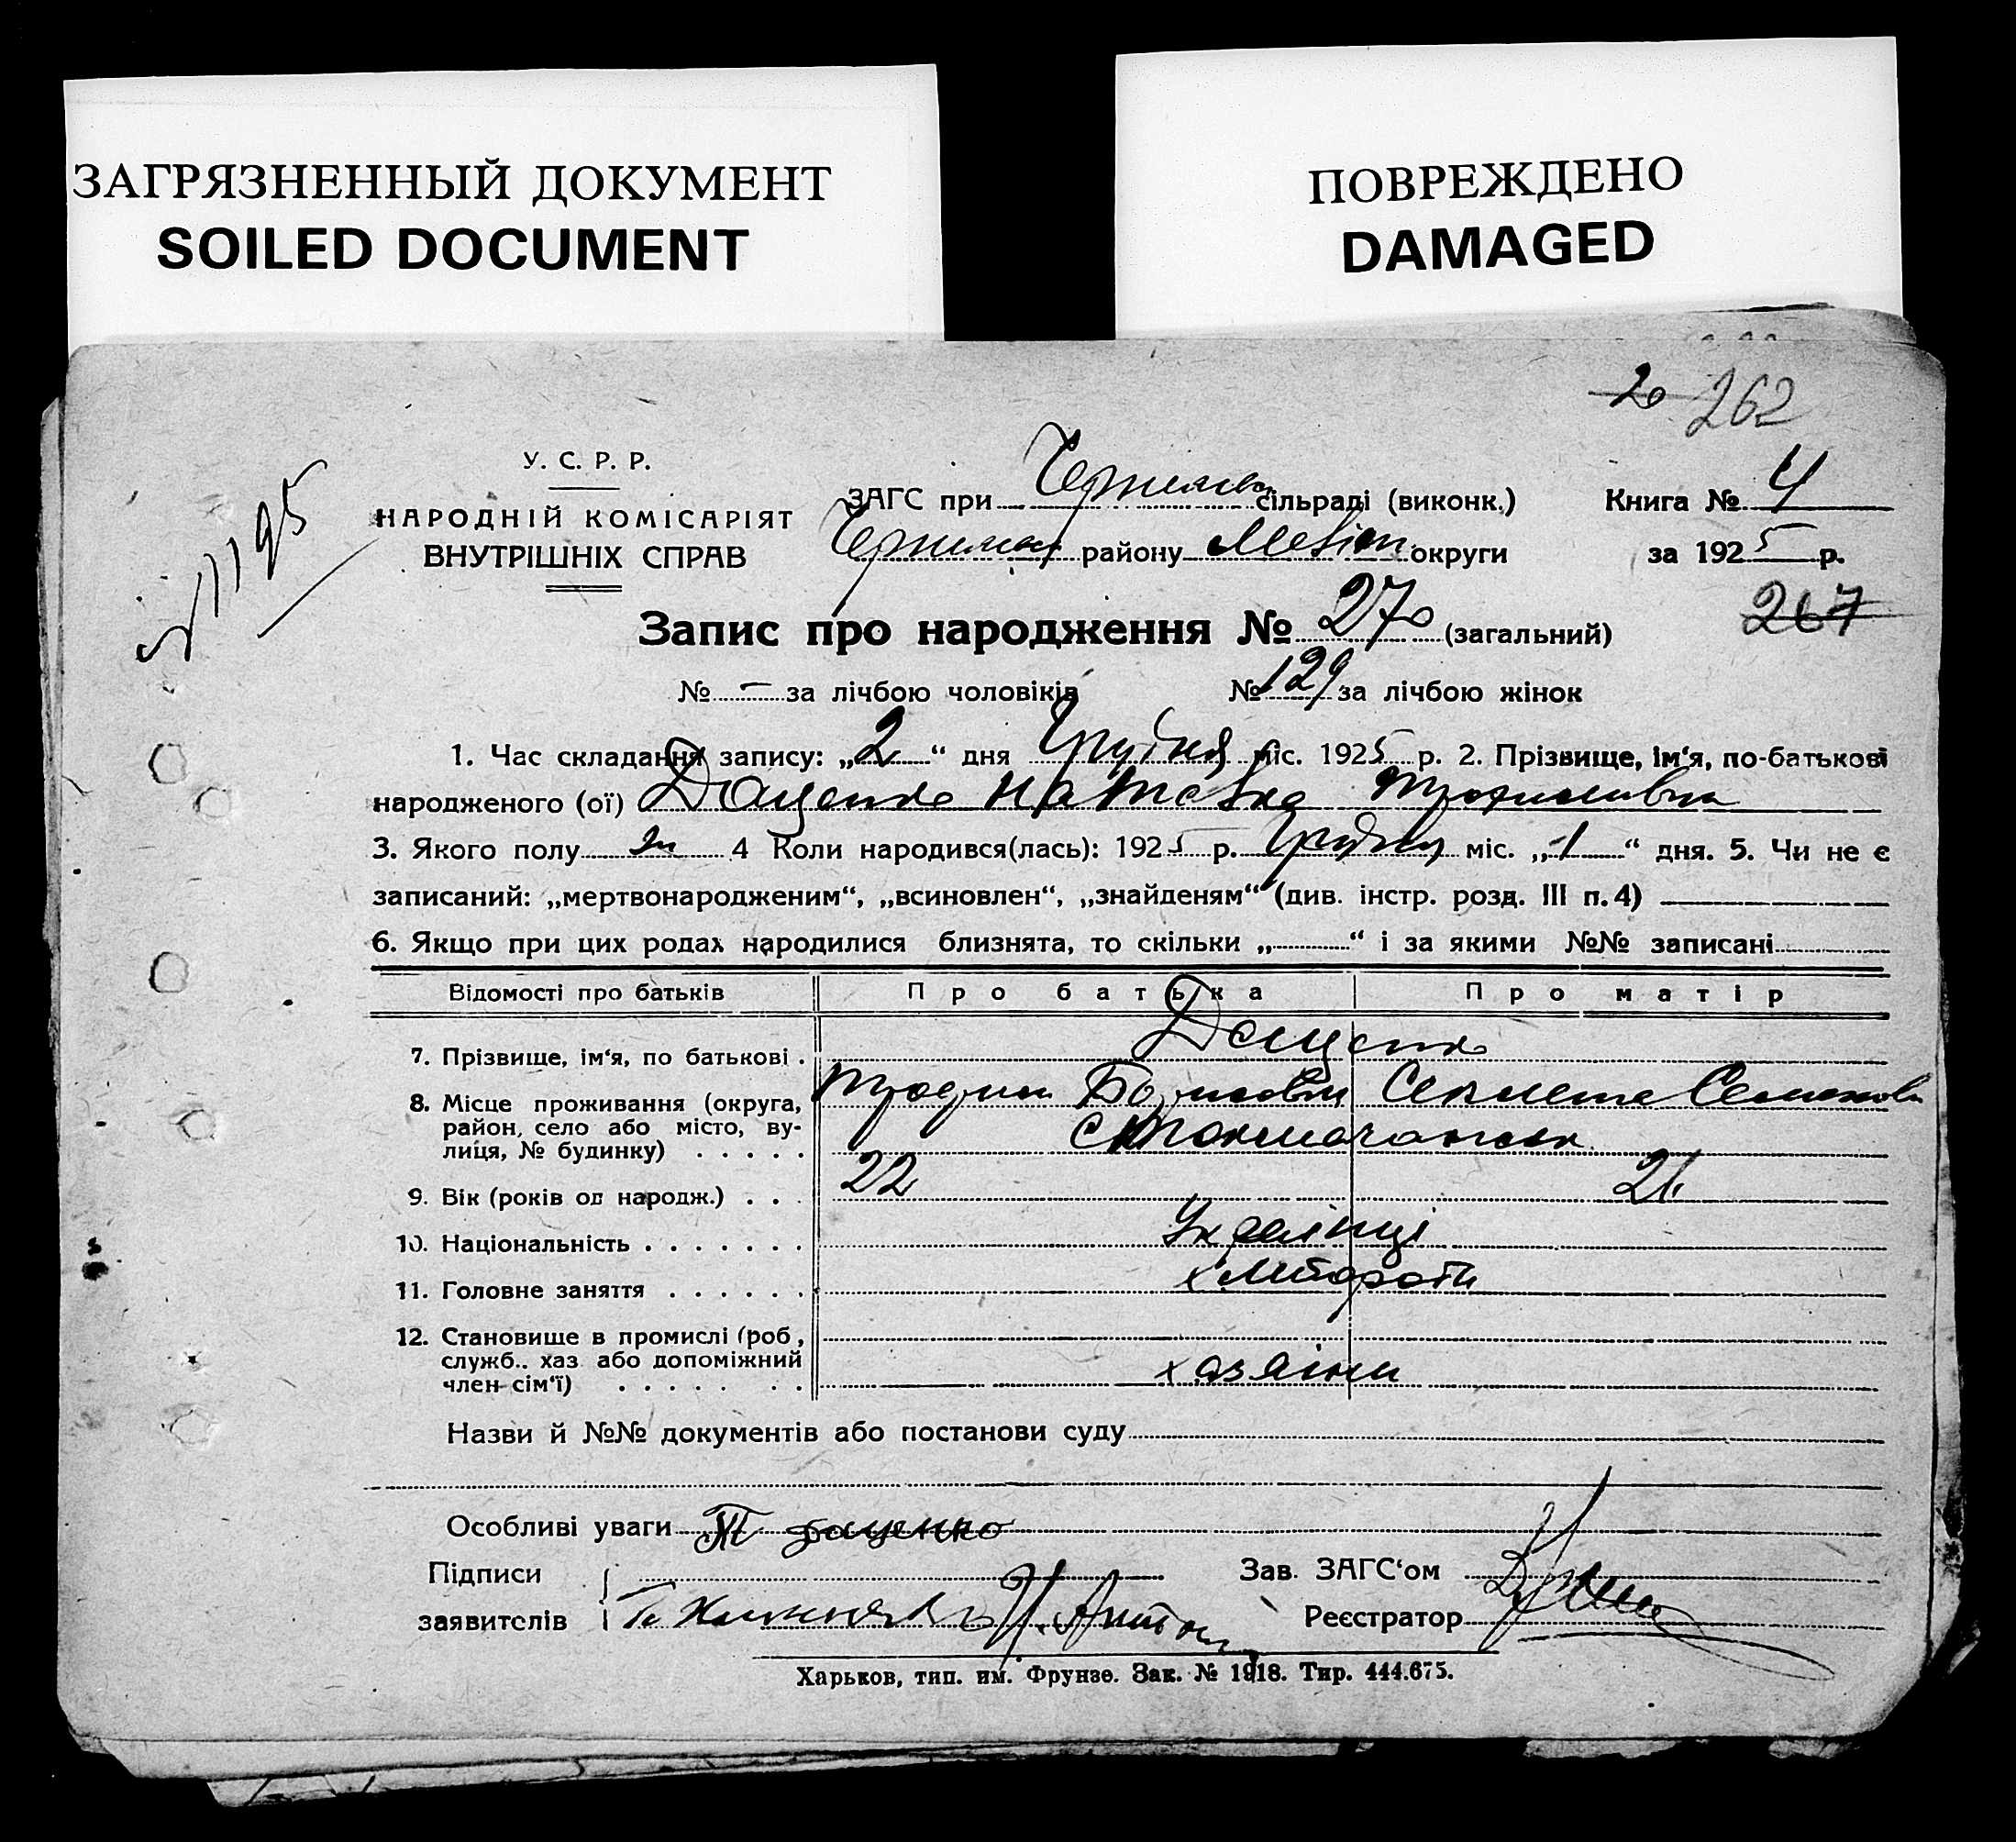 ЗАГРЯЗНЕННЫЙ ДОКУМЕНТ
SOILED DOCUMENT
ПОВРЕЖДЕНО
DAMAGED
20 262
У. С. Р. Р.
НАРОДНІЙ КОМІСАРІЯТ
ВНУТРІШНІХ СПРАВ
ЗАГС при сільраді (виконк.) Книга № 4
району округи за 1925 р.
Запис про народження № 270 (загальний) 267
№ - за лічбою чоловіків № 129 за лічбою жінок
1. Час складання запису: „2“ дня Грудня міс. 1925 р. 2. Прізвище, ім‘я, по-батькові
народженого (ої) Даценко Наталка Трохимівна
3. Якого полу ж 4 Коли народився(лась): 1925 р. Грудня міс. „1“ дня. 5. Чи не є
записаний: „мертвонародженим“, „всиновлен“, „знайденям“ (див. інстр. розд. III п. 4)
6. Якщо при цих родах народилися близнята, то скільки „ “ і за якими №№ записані
Відомості про батьків Про батька Про матір
7. Прізвище, ім‘я, по батькові . Даценко
8. Місце проживання (округа,
район, село або місто, ву-
лиця, № будинку) . . . . .
9. Вік (років од народж.) . . . 22 21
10. Національність . . . . . . . Українці
11. Головне заняття . . . . . . хлібороби
12. Становище в промислі (роб.,
служб.. хаз. або допоміжний
член-сім‘ї) . . . . . . . хазяіни
Назви й №№ документів або постанови суду
Особливі уваги Т Даценко
Підписи Зав. ЗАГС‘ом
заявителів Реєстратор
Харьков, тип. им. Фрунзе. Зак. № 1918. Тир. 444.675.